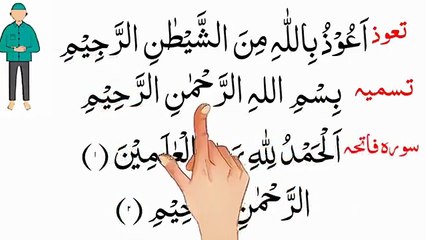 تعوذ اَعُوْذُ بِاللّٰہِ مِنَ الشَّیْطٰنِ الرَّجِیْمِ
تسمیہ بِسْمِ اللہِ الرَّحْمٰنِ الرَّحِیْمِ
سورہ فاتحہ اَلْحَمْدُ لِلّٰہِ الْعٰلَمِیْنَ (۱)
الرَّحْمٰنِ (۲)